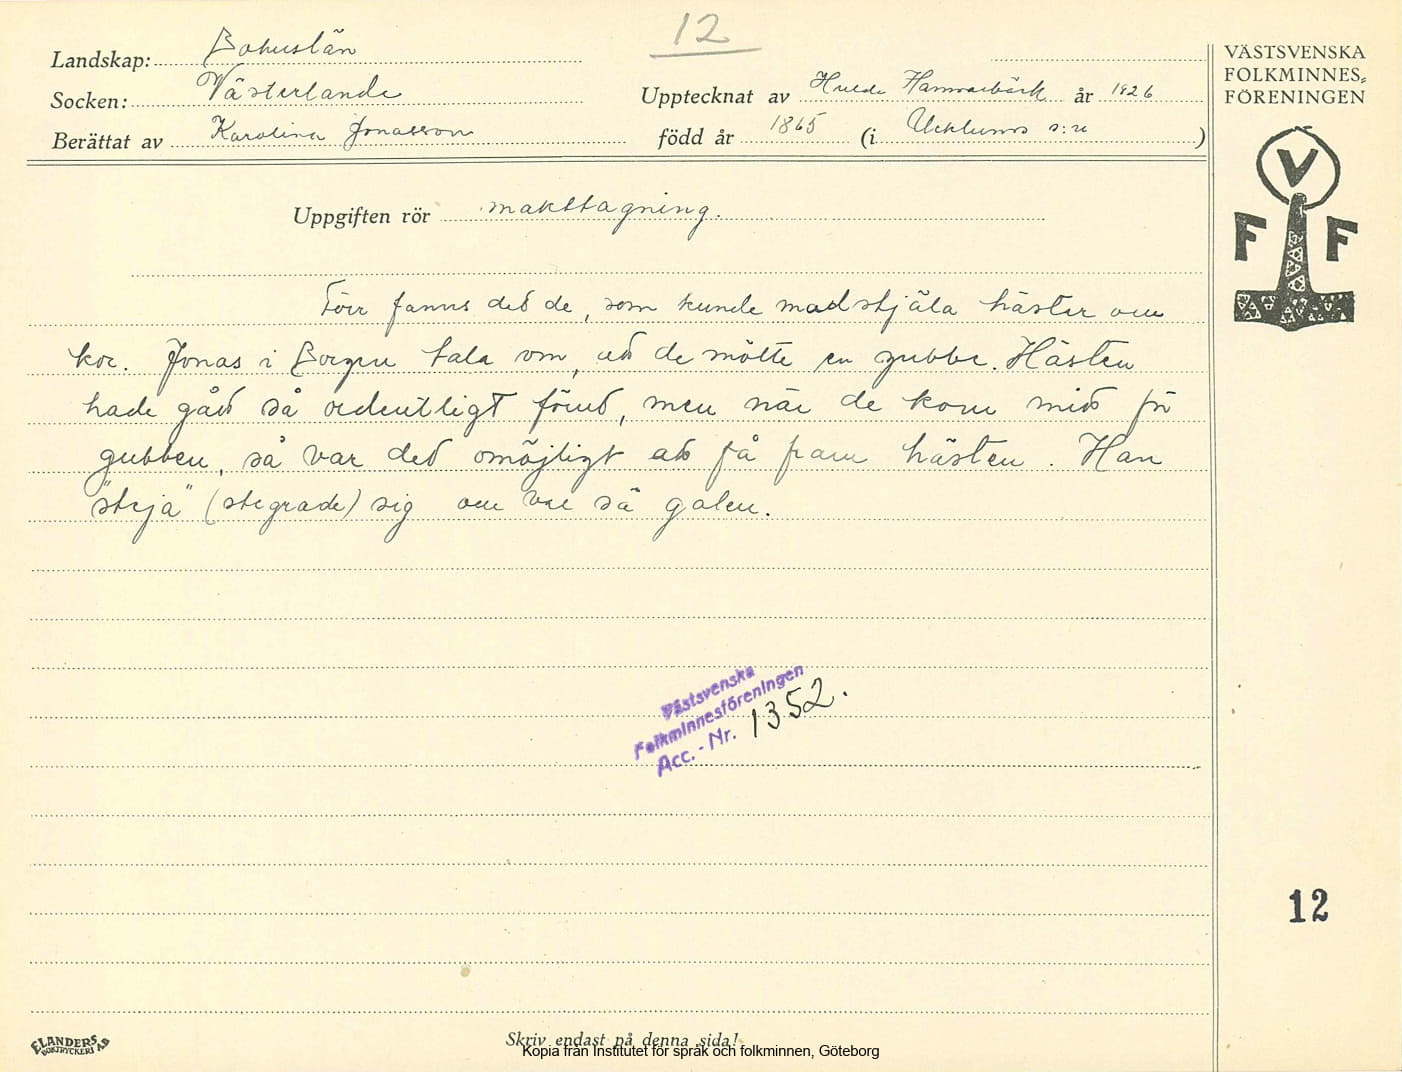 12
Landskap: Bohuslän
Socken: Västerlanda
Upptecknat av Hulda Hammarbäck år 1926
Berättat av Karolina Jonasson född år 1865 (i Ucklums s:n)
VÄSTSVENSKA
FOLKMINNES-
FÖRENINGEN
V
F F
Uppgiften rör makttagning.
Förr fanns det de, som kunde matstjäla hästar och
kor. Jonas i Borgen tala om, att de mötte en gubbe. Hästen
hade gått så ordentligt förut, men när de kom mitt för
gubben, så var det omöjligt att få fram hästen. Han
"steja" (stegrade) sig och var så galen.
Västsvenska
Folkminnesföreningen
Acc.-Nr. 1352.
12
ELANDERS
BOKTRYCKERI AB
Skriv endast på denna sida!
Kopia från Institutet för språk och folkminnen, Göteborg